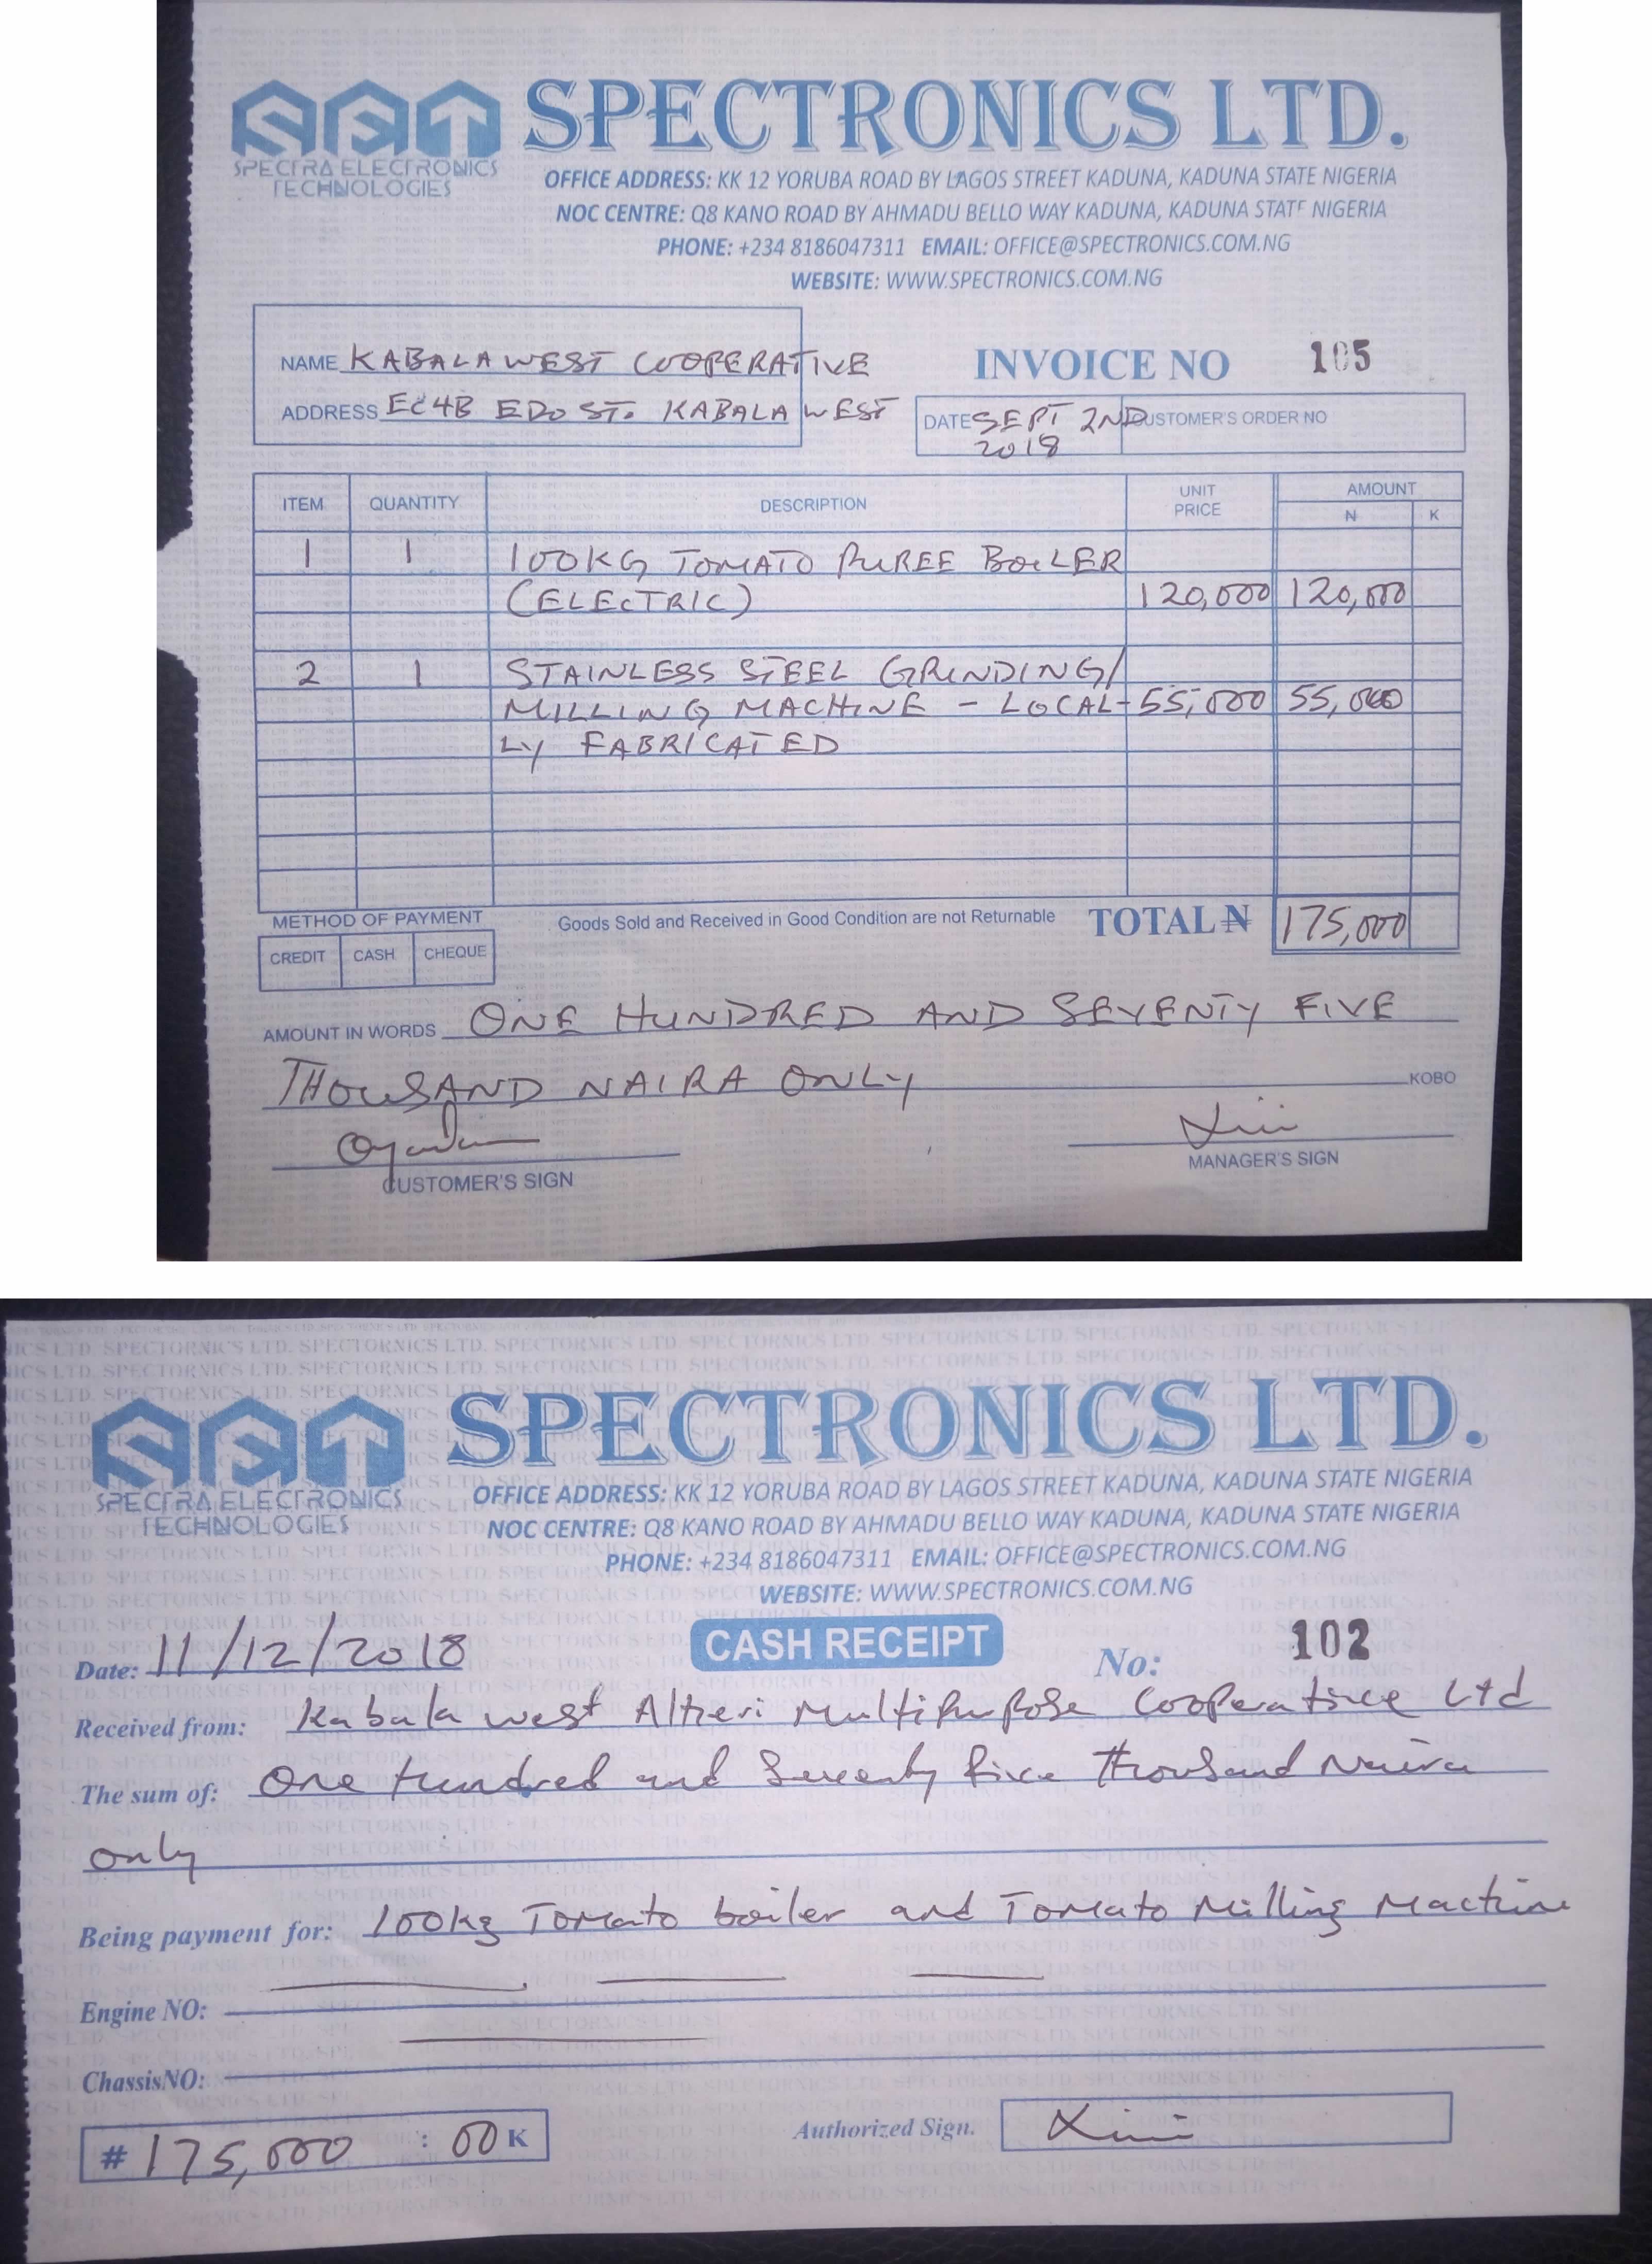 SPECTRONICS LTD.
SPECTRA ELECTRONICS
TECHNOLOGIES
OFFICE ADDRESS: KK 12 YORUBA ROAD BY LAGOS STREET KADUNA, KADUNA STATE NIGERIA
NOC CENTRE: Q8 KANO ROAD BY AHMADU BELLO WAY KADUNA, KADUNA STATE NIGERIA
PHONE: +234 8186047311 EMAIL: OFFICE@SPECTRONICS.COM.NG
WEBSITE: WWW.SPECTRONICS.COM.NG
NAME KABALA WEST COOPERATIVE
ADDRESS EC4B EDO ST. KABALA WEST
INVOICE NO 105
DATE SEPT 2ND 2018
CUSTOMER'S ORDER NO
ITEM QUANTITY DESCRIPTION UNIT PRICE AMOUNT
N K
1 1 100KG TOMATO PUREE BOILER
(ELECTRIC) 120,000 120,000
2 1 STAINLESS STEEL GRINDING/
MILLING MACHINE - LOCAL- 55,000 55,000
LY FABRICATED
METHOD OF PAYMENT Goods Sold and Received in Good Condition are not Returnable TOTAL ₦ 175,000
CREDIT CASH CHEQUE
AMOUNT IN WORDS ONE HUNDRED AND SEVENTY FIVE
THOUSAND NAIRA ONLY KOBO
CUSTOMER'S SIGN MANAGER'S SIGN
SPECTRONICS LTD.
SPECTRA ELECTRONICS
TECHNOLOGIES
OFFICE ADDRESS: KK 12 YORUBA ROAD BY LAGOS STREET KADUNA, KADUNA STATE NIGERIA
NOC CENTRE: Q8 KANO ROAD BY AHMADU BELLO WAY KADUNA, KADUNA STATE NIGERIA
PHONE: +234 8186047311 EMAIL: OFFICE@SPECTRONICS.COM.NG
WEBSITE: WWW.SPECTRONICS.COM.NG
Date: 11/12/2018 CASH RECEIPT No: 102
Received from: Kabala west Altieri Multipurpose Cooperative Ltd
The sum of: One hundred and Seventy five thousand Naira
only
Being payment for: 100kg Tomato boiler and Tomato Milling Machine
Engine NO:
ChassisNO:
# 175,000 : 00 K Authorized Sign.